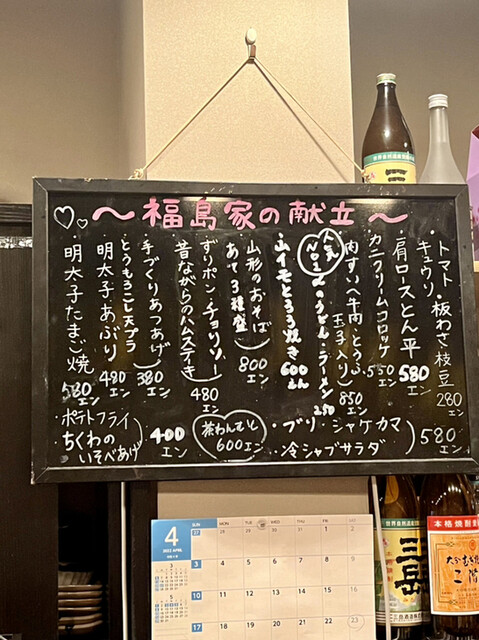 ～福島家の献立～
トマト・板わさ枝豆
キュウリ
280
エン
・肩ロースとん平
580
エン
・カニクリームコロッケ
550
エン
・肉すい(牛肉・とうふ
玉子入り)
850
エン
人気
No1
うどん・ラーメン
250
・山イモとろろ焼き
600
エン
・山形のおそば
あて3種盛
800
エン
ずりポン・チョリソー
昔ながらのハムステーキ
480
エン
手づくりあつあげ
380
エン
とうもろこし天プラ
明太子あぶり
480
エン
明太子たまご焼
580
エン
・ブリ・シャケカマ
・冷シャブサラダ
580
エン
茶わんむし
600エン
・ポテトフライ
・ちくわの
いそべあげ
400
エン
4
2022 APRIL
SUN MON TUE WED THU FRI SAT
27 28 29 30 31 1 2
3 4 5 6 7 8 9
10 11 12 13 14 15 16
17 18 19 20 21 22 23
5
世界自然遺産
三岳
本格焼酎